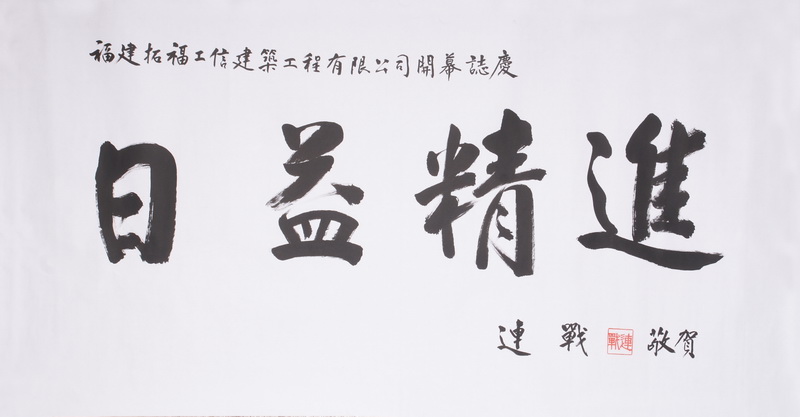 福建拓福工信建築工程有限公司開幕誌慶
日益精進
連戰 連戰 敬賀